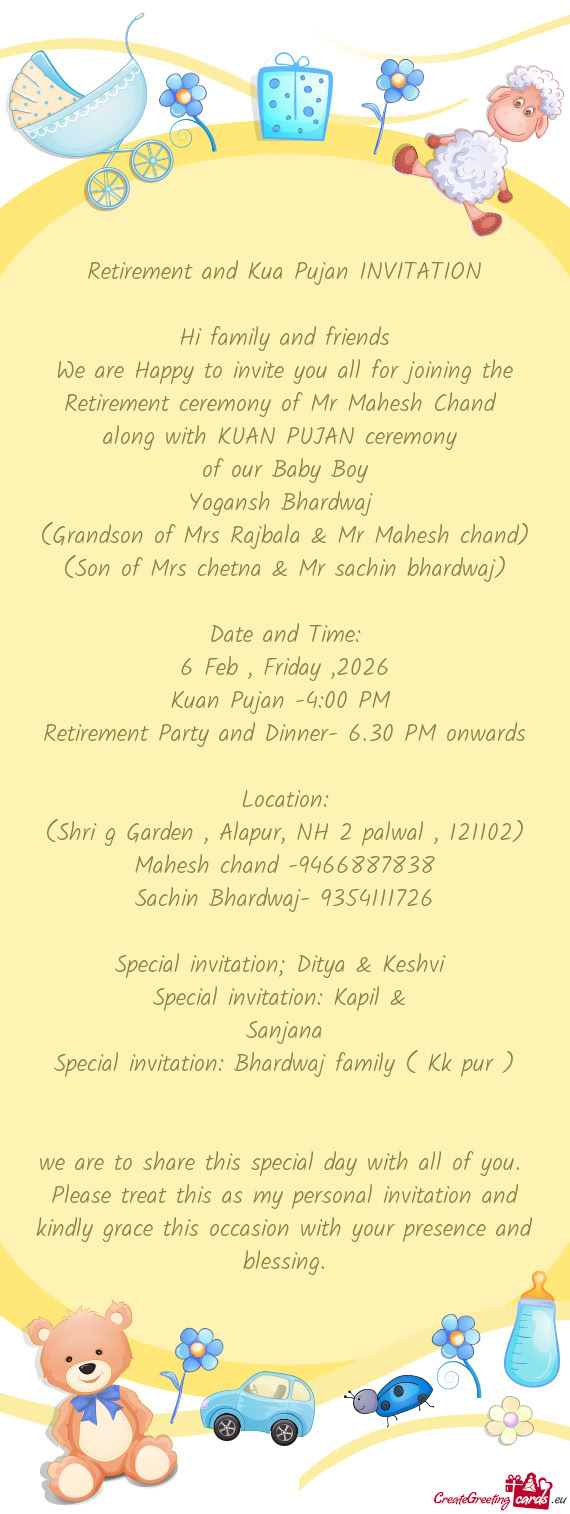 Retirement and Kua Pujan INVITATION
Hi family and friends
We are Happy to invite you all for joining the
Retirement ceremony of Mr Mahesh Chand
along with KUAN PUJAN ceremony
of our Baby Boy
Yogansh Bhardwaj
(Grandson of Mrs Rajbala & Mr Mahesh chand)
(Son of Mrs chetna & Mr sachin bhardwaj)
Date and Time:
6 Feb , Friday ,2026
Kuan Pujan -4:00 PM
Retirement Party and Dinner- 6.30 PM onwards
Location:
(Shri g Garden , Alapur, NH 2 palwal , 121102)
Mahesh chand -9466887838
Sachin Bhardwaj- 9354111726
Special invitation; Ditya & Keshvi
Special invitation: Kapil &
Sanjana
Special invitation: Bhardwaj family ( Kk pur )
we are to share this special day with all of you.
Please treat this as my personal invitation and
kindly grace this occasion with your presence and
blessing.
CreateGreetingcards.eu